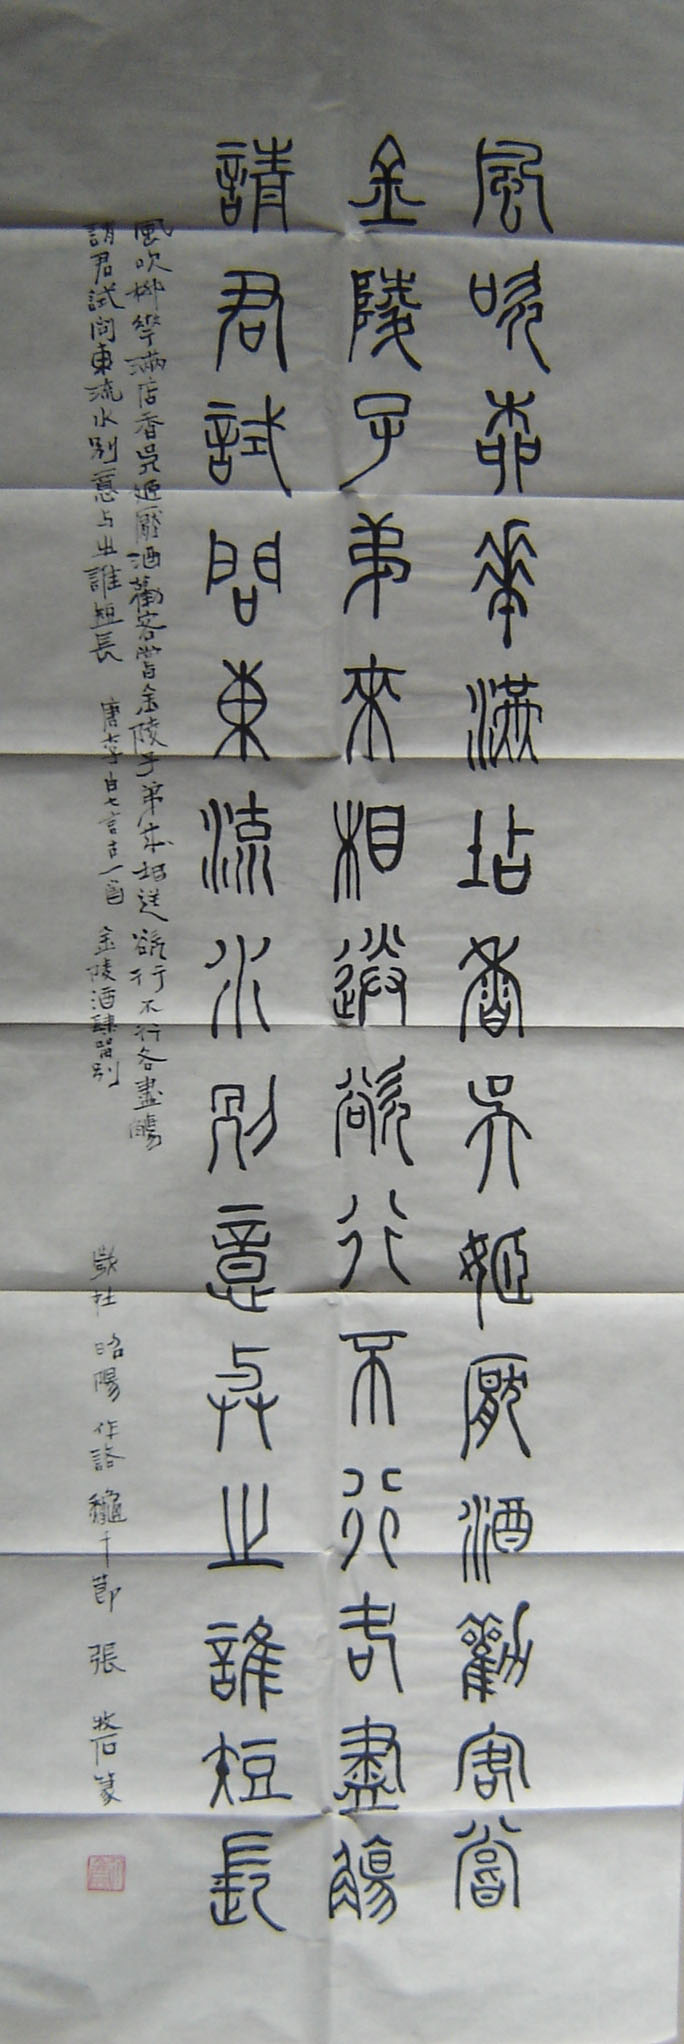 風吹柳華滿坫香吳姬壓酒勸客嘗
金陵子弟來相送欲行不行各盡觴
請君試問東流水別意與之誰短長
風吹柳華滿店香吳姬壓酒勸客嘗金陵子弟來相送欲行不行各盡觴
請君試問東流水別意与之誰短長 唐李白七言古一首 金陵酒肆留別
昭陽作詻 秋秋千節 張 篆